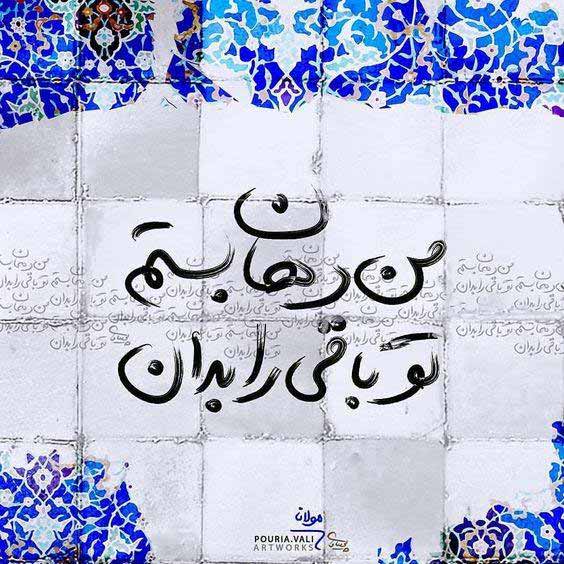 من دهان بستم
تو باقی را بدان
مولانا
POURIA.VALI
ARTWORKS